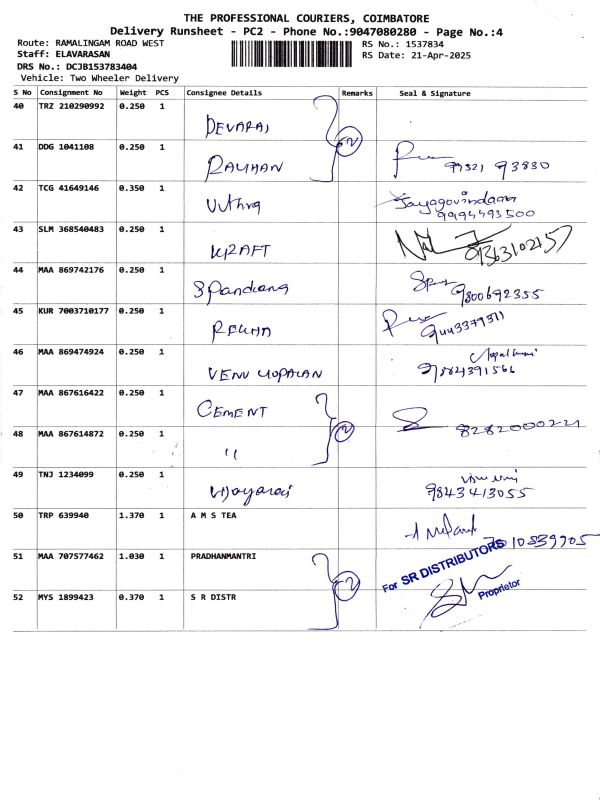 THE PROFESSIONAL COURIERS, COIMBATORE
Delivery Runsheet - PC2 - Phone No.:9047080280 - Page No.:4
Route: RAMALINGAM ROAD WEST
RS No.: 1537834
Staff: ELAVARASAN
RS Date: 21-Apr-2025
DRS No.: DCJB153783404
Vehicle: Two Wheeler Delivery
S No Consignment No Weight PCS Consignee Details Remarks Seal & Signature
40 TRZ 210290992 0.250 1 DEVARAJ
41 DDG 1041108 0.250 1 RAUHAN 2 93830
42 TCG 41649146 0.350 1 Uthra Jayagovindaan
9994493500
43 SLM 368540483 0.250 1 KRAFT 9363102157
44 MAA 869742176 0.250 1 9800692355
45 KUR 7003710177 0.250 1 REKHA
46 MAA 869474924 0.250 1 VENU GOPALAN
9884391566
47 MAA 867616422 0.250 1 CEMENT
8282000221
48 MAA 867614872 0.250 1 " 2
49 TNJ 1234099 0.250 1 Vijayaraj
9843413055
50 TRP 639940 1.370 1 A M S TEA
7010839905
51 MAA 707577462 1.030 1 PRADHANMANTRI
For SR DISTRIBUTORS
2
Proprietor
52 MYS 1899423 0.370 1 S R DISTR